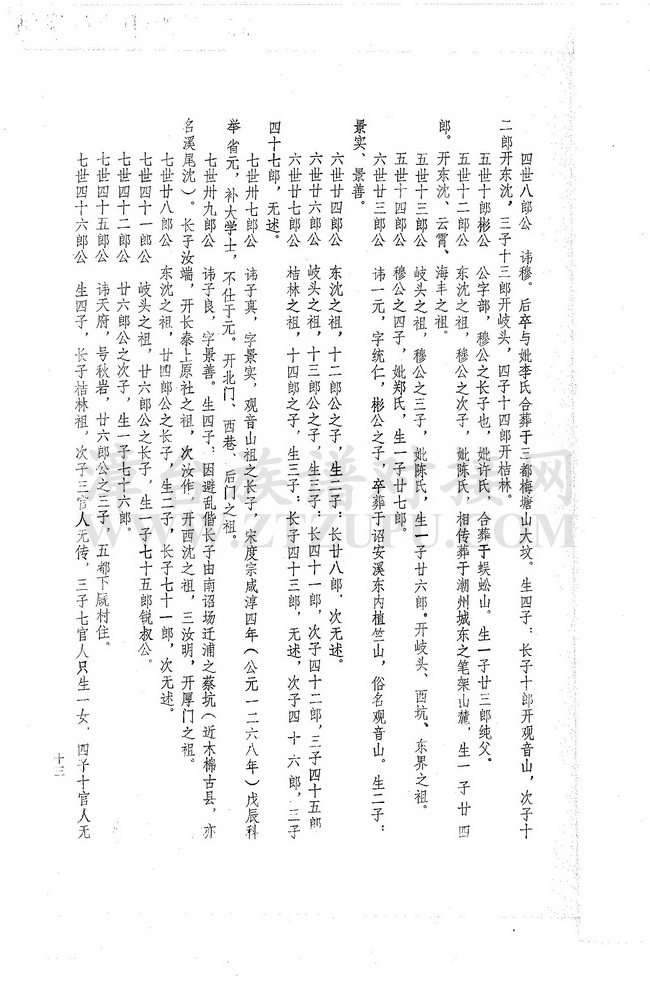 四世八郎公　讳穆。后卒与妣李氏合葬于三都梅塘山大坟。生四子：长子十郎开观音山，次子十
二郎开东沈，三子十三郎开岐头，四子十四郎开桔林。
五世十郎彬公　公字部，穆公之长子也，妣许氏，合葬于蜈蚣山。生一子廿三郎纯父。
五世十二郎公　东沈之祖，穆公之次子，妣陈氏，相传葬于潮州城东之笔架山麓，生一子廿四
郎。开东沈、云霄、海丰之祖。
五世十三郎公　岐头之祖，穆公之三子，妣陈氏，生一子廿六郎。开岐头、西坑、东界之祖。
五世十四郎公　穆公之四子，妣郑氏，生一子廿七郎。
六世廿三郎公　讳一元，字统仁，彬公之子，卒葬于诏安溪东内植竺山，俗名观音山。生二子：
景实、景善。
六世廿四郎公　东沈之祖，十二郎公之子，生二子：长廿八郎，次无述。
六世廿六郎公　岐头之祖，十三郎公之子，生三子：长四十一郎，次子四十二郎，三子四十五郎
六世廿七郎公　桔林之祖，十四郎之子，生三子：长子四十三郎，无述，次子四十六郎，三子
四十七郎，无述。
七世卅七郎公　讳子真，字景实，观音山祖之长子，宋度宗咸淳四年（公元一二六八年）戊辰科
举省元，补大学士，不仕于元。开北门、西巷、后门之祖。
七世卅九郎公　讳子良，字景善。生四子：因避乱偕长子由南诏场迁浦之蔡坑（近木棉古县，亦
名溪尾沈）。长子汝端，开长泰上原社之祖，次汝作，开西沈之祖，三汝明，开厚门之祖。
七世廿八郎公　东沈之祖，廿四郎公之长子，生二子，长子七十一郎，次无述。
七世四十一郎公　岐头之祖，廿六郎公之长子，生一子七十五郎锐叔公。
七世四十二郎公　廿六郎公之次子，生一子七十六郎。
七世四十五郎公　讳天府，号秋岩，廿六郎公之三子，五都下厩村住。
七世四十六郎公　生四子，长子桔林祖，次子三官人无传，三子七官人只生一女，四子十官人无
十三
WWW.ZTZUPU.COM